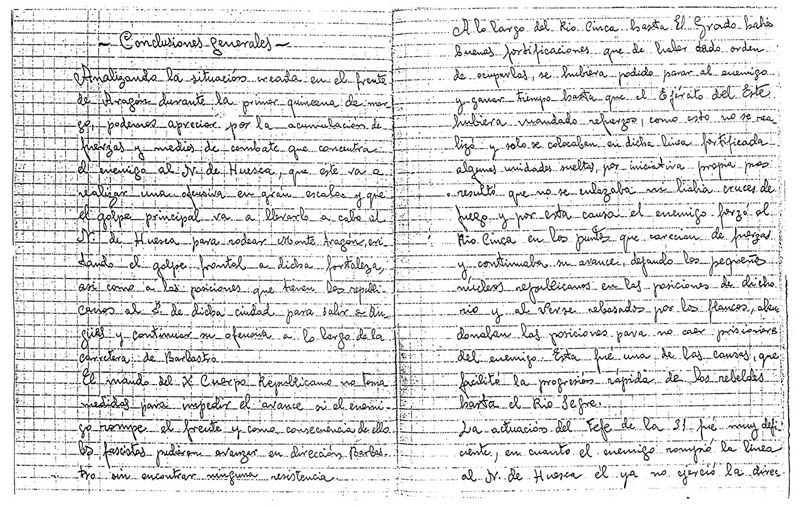 ~ Conclusiones generales ~
Analizando la situación creada en el frente
de Aragón durante la primer quincena de mar-
zo, podemos apreciar por la acumulación de
fuerzas y medios de combate que concentra
el enemigo al N. de Huesca, que este va a
realizar una ofensiva en gran escala y que
el golpe principal va a llevarlo a cabo al
N. de Huesca para rodear Monte Aragón, evi-
tando el golpe frontal a dicha fortaleza,
así como a las posiciones que tienen los republi-
canos al S. de dicha ciudad para salir a An-
güés y continuar su ofensiva a lo largo de la
carretera de Barbastro.
El mando del X Cuerpo Republicano no tomó
medidas para impedir el avance si el enemi-
go rompe el frente y como consecuencia de ello
los fascistas pudieron avanzar en dirección Barbas-
tro sin encontrar ninguna resistencia.
A lo largo del Rio Cinca hasta El Grado había
buenas fortificaciones que de haber dado orden
de ocuparlas, se hubiera podido parar al enemigo
y ganar tiempo hasta que el Ejército del Este
hubiera mandado refuerzos, como esto no se rea-
lizó y solo se colocaban en dicha linea fortificada
algunas unidades sueltas, por iniciativa propia
resultó que no se enlazaba ni había cruces de
fuego y por esta causa el enemigo forzó el
Rio Cinca en los puntos que carecian de fuerzas
y continuaba su avance, dejando los pequeños
nucleos republicanos en las posiciones de dicho
rio y al verse rebasados por los flancos, aban
donaban las posiciones para no caer prisioneros
del enemigo. Esta fué una de las causas, que
facilitó la progresión rápida de los rebeldes
hasta el Rio Segre.
La actuación del Jefe de la 31 fué muy defi
ciente, en cuanto el enemigo rompió la linea
al N. de Huesca él ya no ejerció la direc